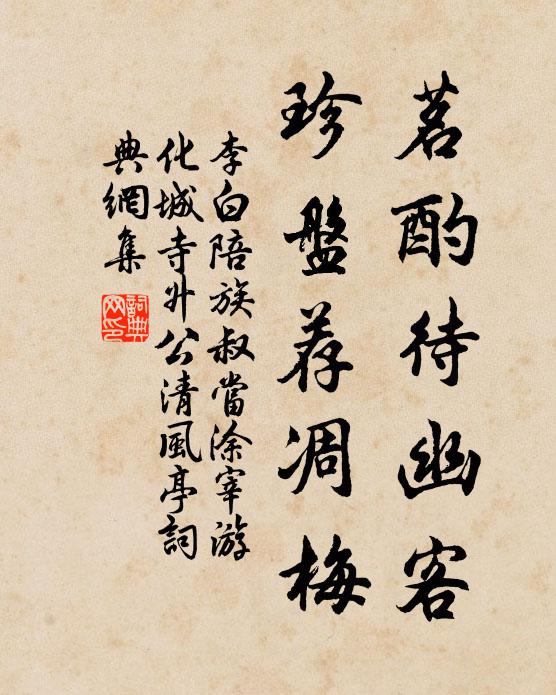 茗酌待幽客
珍盤荐凋梅
李白陪族叔當涂宰游
化城寺升公清風亭詞
典網集
詞典网印